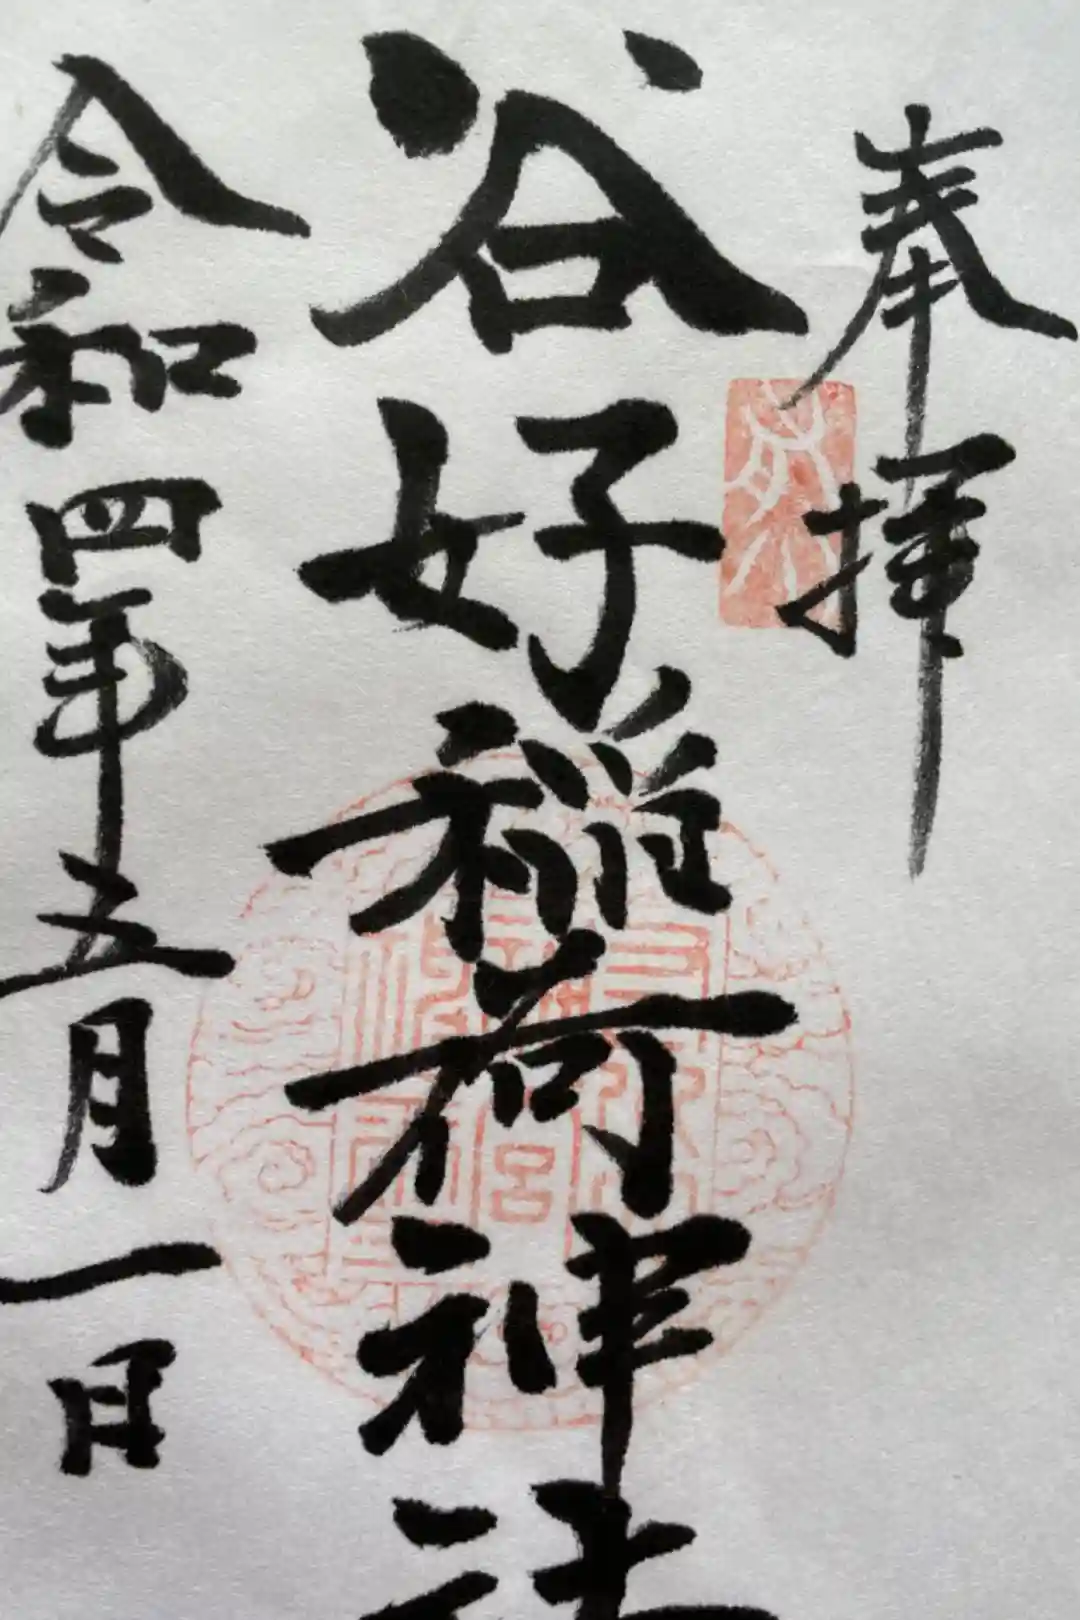 奉拝
谷好稲荷神社
令和四年五月一日